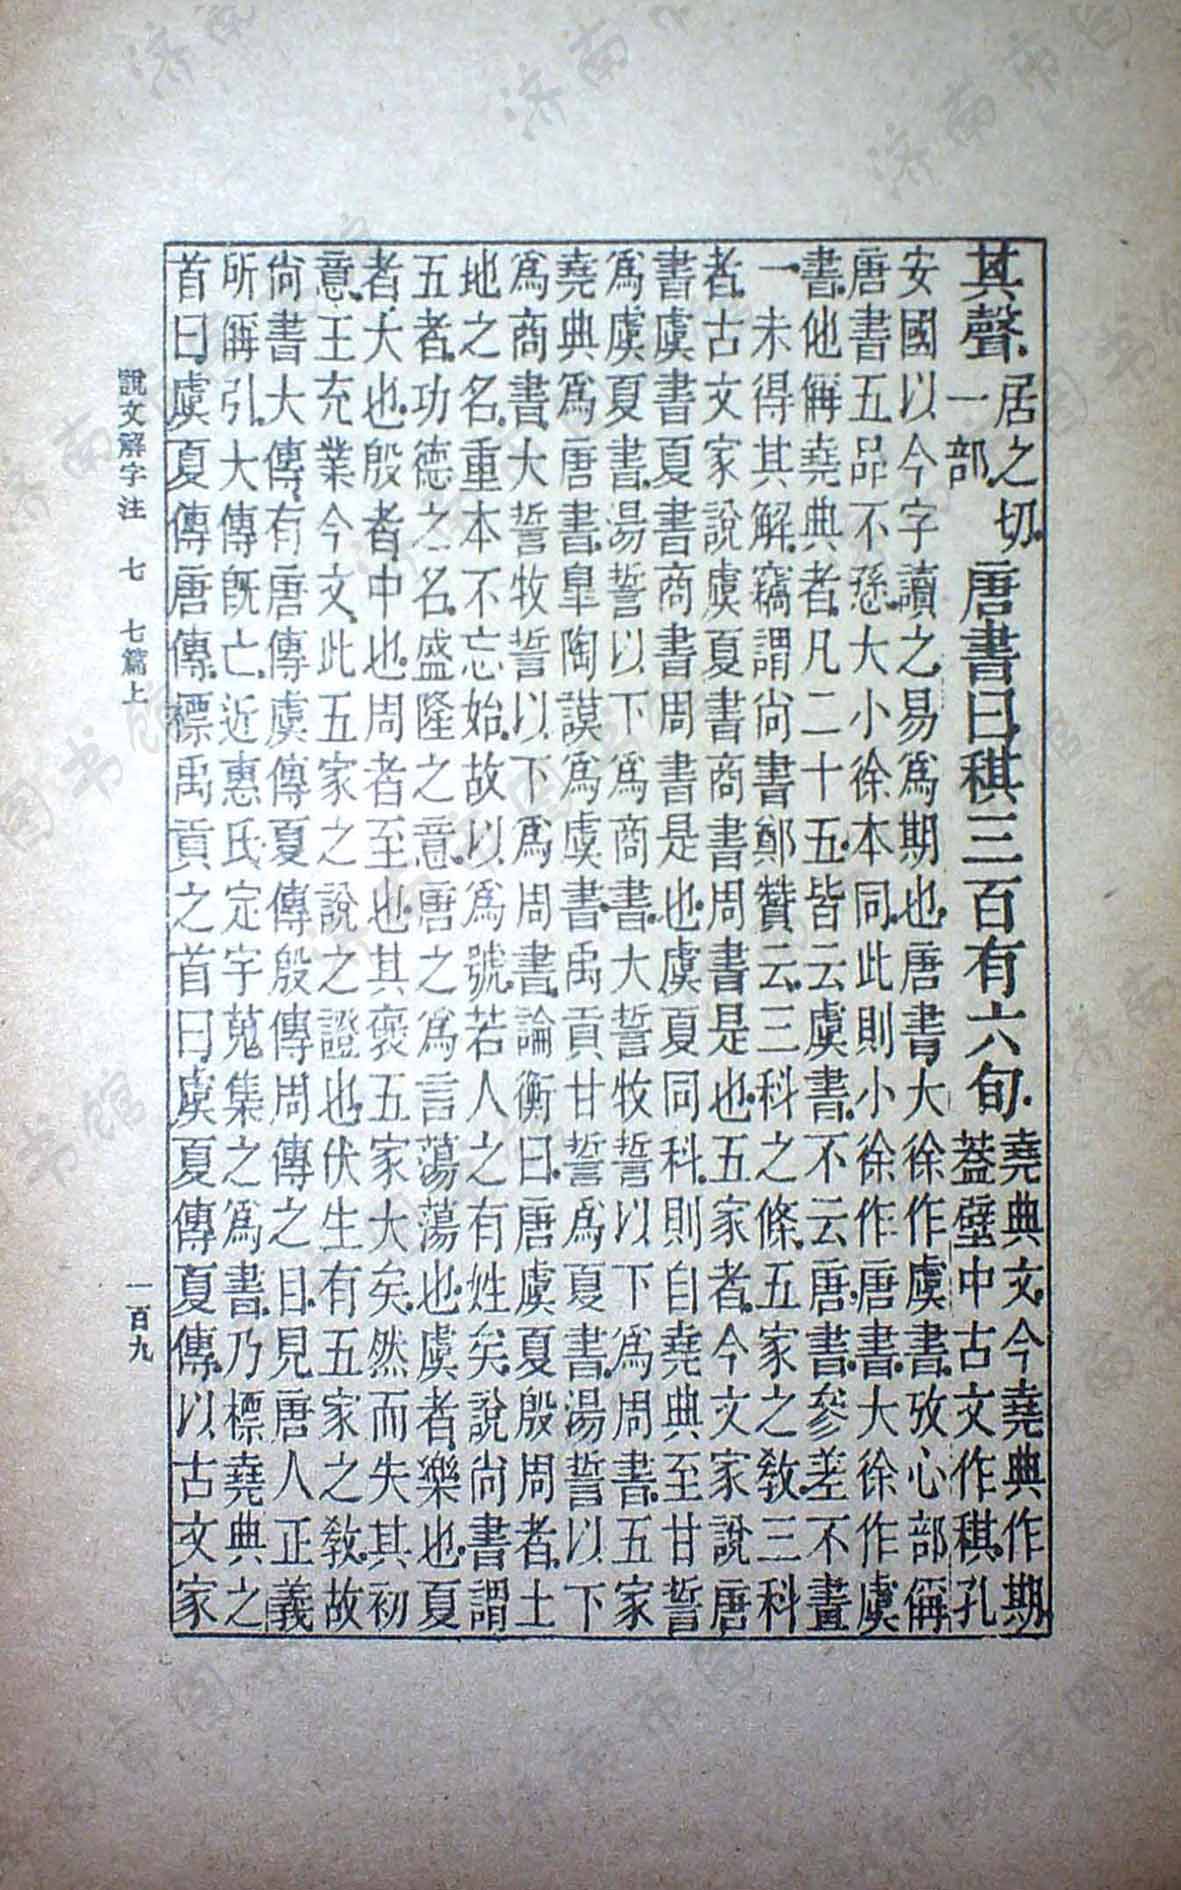 其聲.居之切.一部.唐書曰.稘三百有六旬.堯典文.今堯典作期.蓋壁中古文作稘.孔
安國以今字讀之.易爲期也.唐書.大徐作虞書.攷心部偁
唐書五品不愻.大小徐本同.此則小徐作唐書.大徐作虞
書.他偁堯典者.凡二十五.皆云虞書.不云唐書.參差不畫
一.未得其解.竊謂尚書鄭贊云.三科之條.五家之敎.三科
者.古文家說虞夏書商書周書是也.五家者.今文家說唐
書虞書夏書商書周書是也.虞夏同科.則自堯典至甘誓
爲虞夏書.湯誓以下爲商書.大誓牧誓以下爲周書.五家
堯典爲唐書.皐陶謨爲虞書.禹貢甘誓爲夏書.湯誓以下
爲商書.大誓牧誓以下爲周書.論衡曰.唐虞夏殷周者.土
地之名.重本不忘始.故以爲號.若人之有姓矣.說尚書謂
五者.功德之名.盛隆之意.唐之爲言蕩蕩也.虞者.樂也.夏
者.大也.殷者.中也.周者至也.其襃五家大矣.然而失其初
意.王充業今文.此五家之說之證也.伏生有五家之敎.故
尚書大傳.有唐傳虞傳夏傳殷傳周傳之目.見唐人正義
所偁引.大傳旣亡.近惠氏定宇蒐集之爲書.乃標堯典之
首曰.虞夏傳唐傳.標禹貢之首曰虞夏傳夏傳.以古文家
說文解字注 七 七篇上 一百九
济南市图书馆